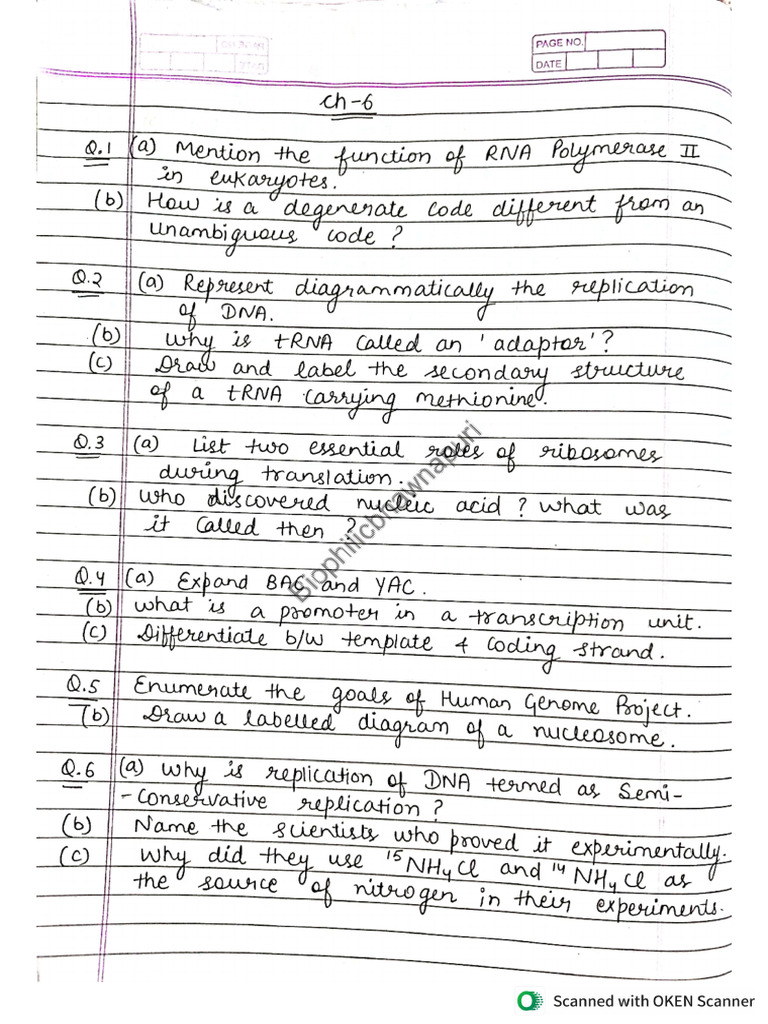 PAGE NO.
DATE
Ch-6
Q.1 (a) Mention the function of RNA Polymerase II
in eukaryotes.
(b) How is a degenerate code different from an
unambiguous code ?
Q.2 (a) Represent diagrammatically the replication
of DNA.
(b) Why is tRNA called an 'adaptor'?
(c) Draw and label the secondary structure
of a tRNA carrying methionine.
Q.3 (a) List two essential roles of ribosomes
during translation.
(b) Who discovered nucleic acid ? What was
it called then ?
Q.4 (a) Expand BAC and YAC.
(b) What is a promoter in a transcription unit.
(c) Differentiate b/w template & coding strand.
Q.5 Enumerate the goals of Human Genome Project.
(b) Draw a labelled diagram of a nucleosome.
Q.6 (a) Why is replication of DNA termed as Semi-
-Conservative replication ?
(b) Name the scientists who proved it experimentally.
(c) Why did they use ¹⁵NH₄Cl and ¹⁴NH₄Cl as
the source of nitrogen in their experiments.
Biophilicbhawnapuri
Scanned with OKEN Scanner